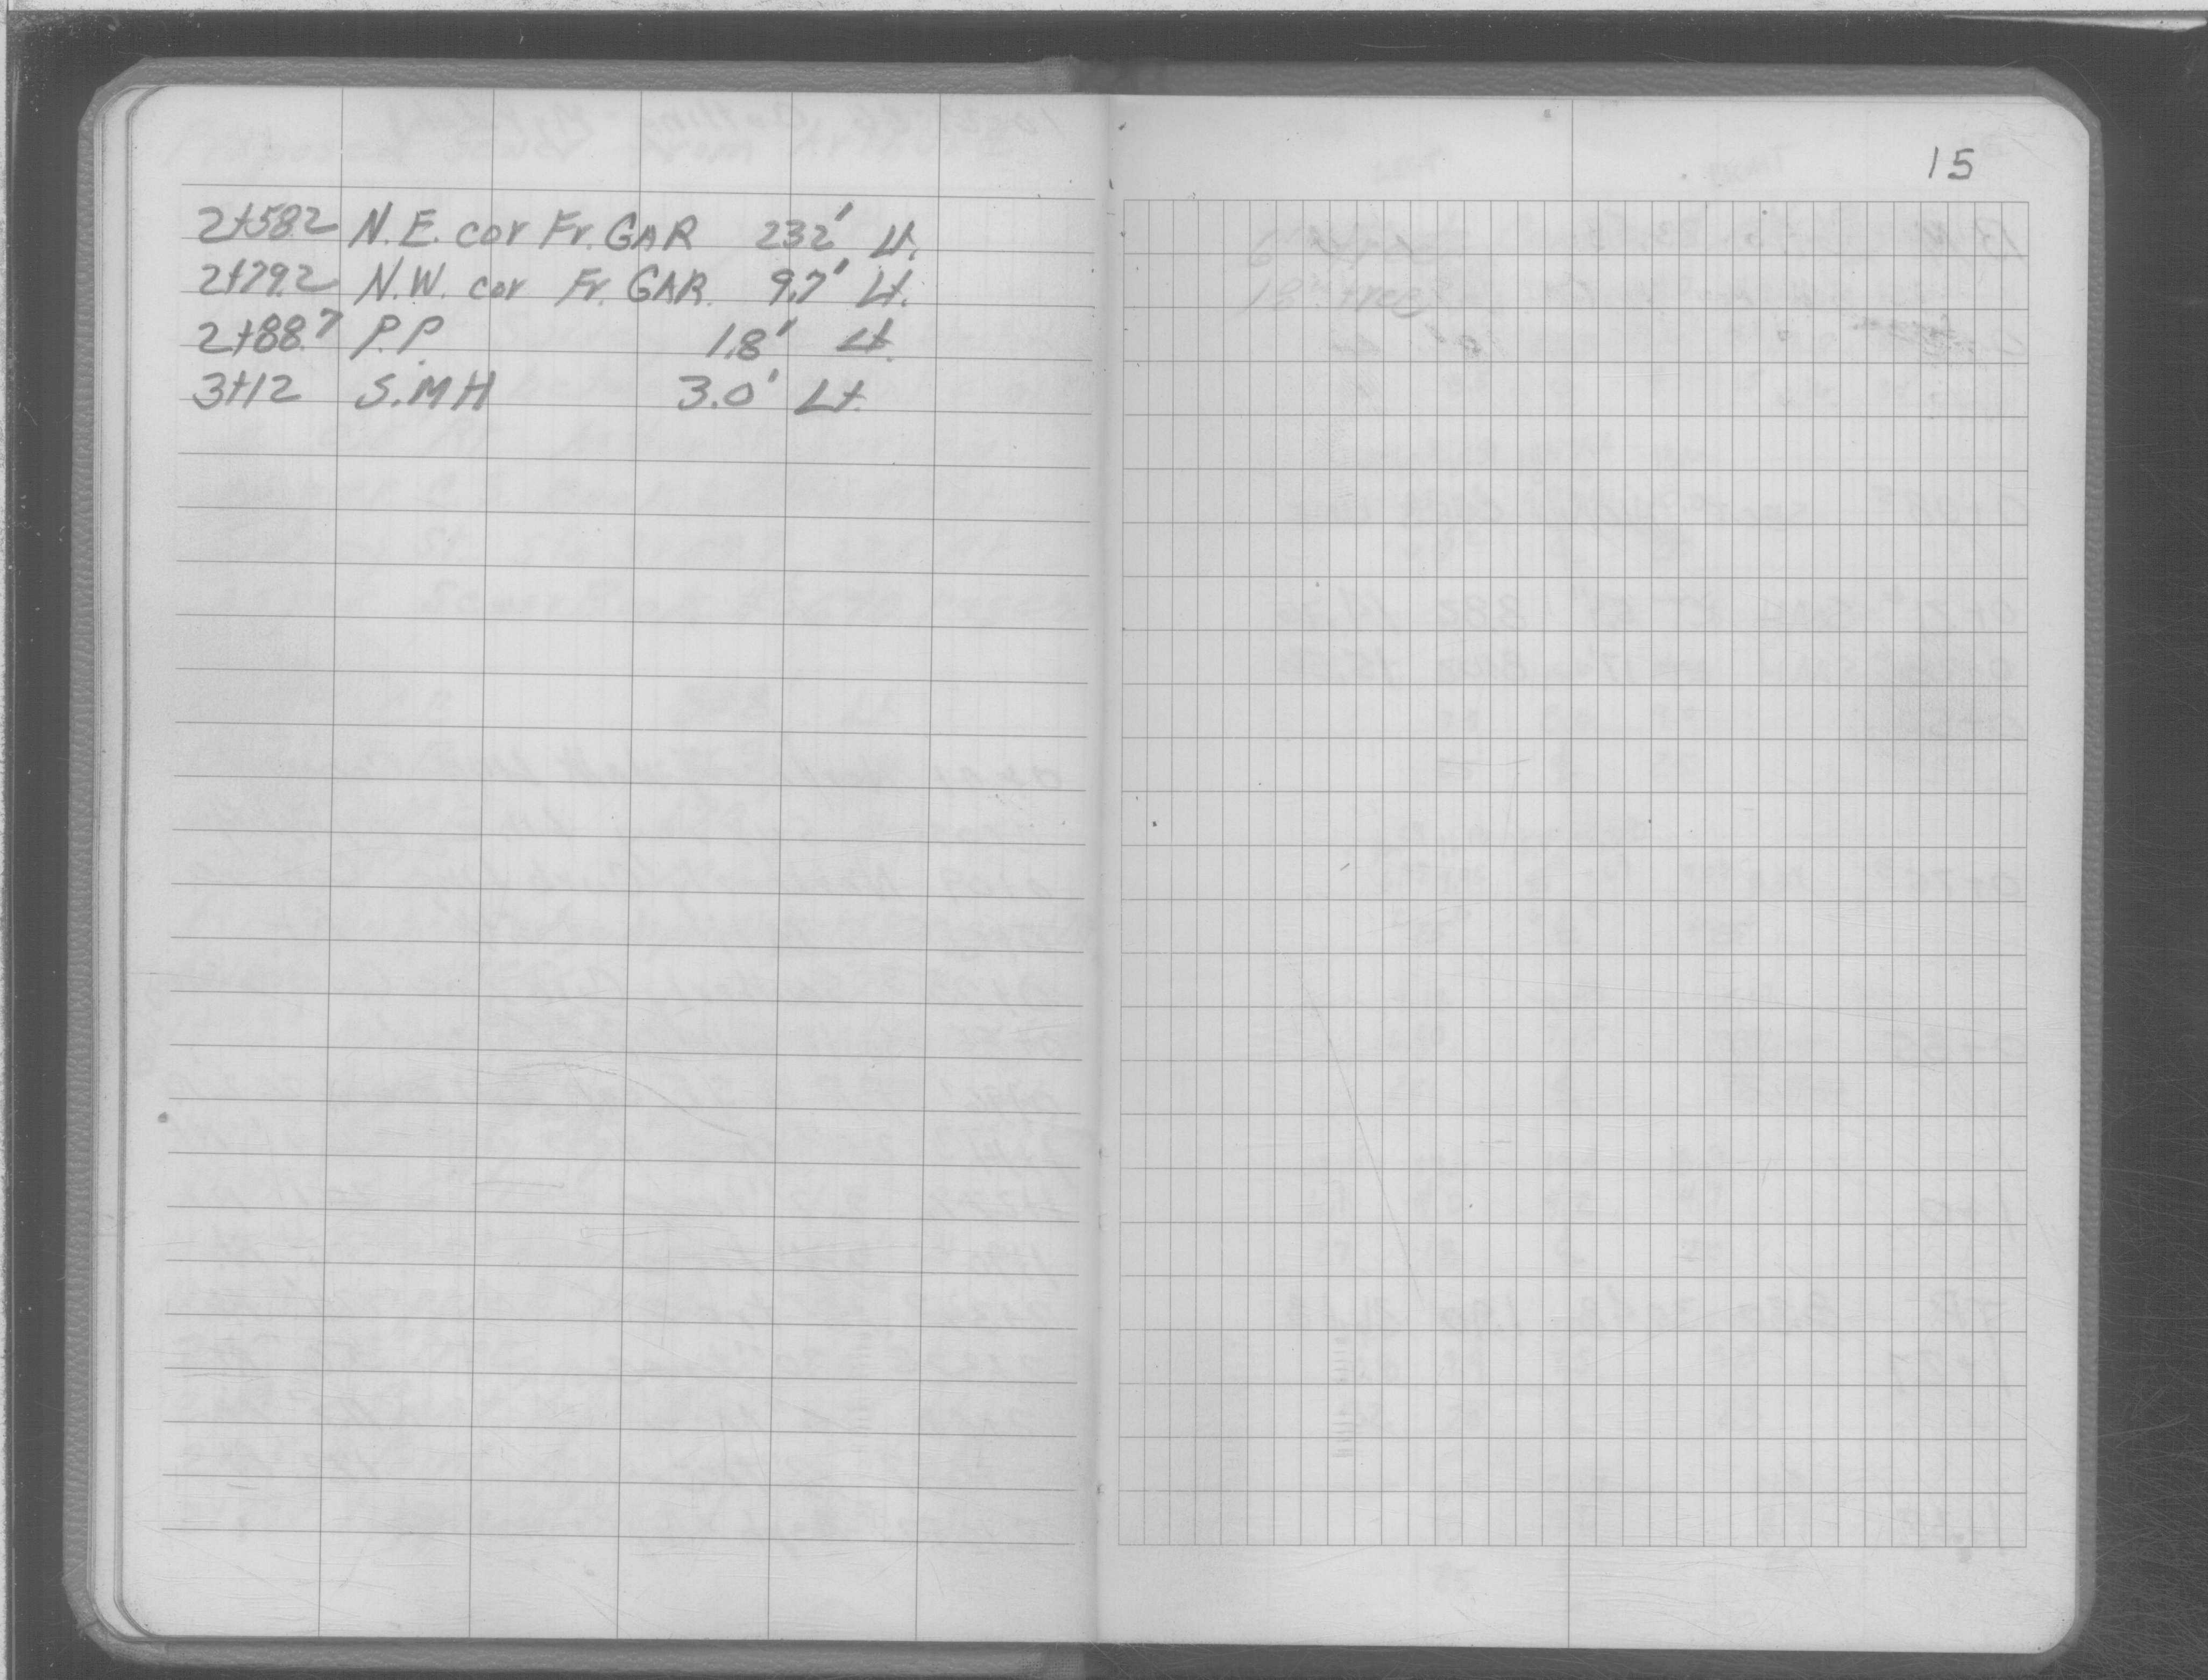 15
2+58.2 N.E. cor Fr. GAR 23.2' Lt.
2+79.2 N.W. cor Fr. GAR. 9.7' Lt.
2+88.7 P.P. 1.8' Lt.
3+12 S.M H 3.0' Lt.